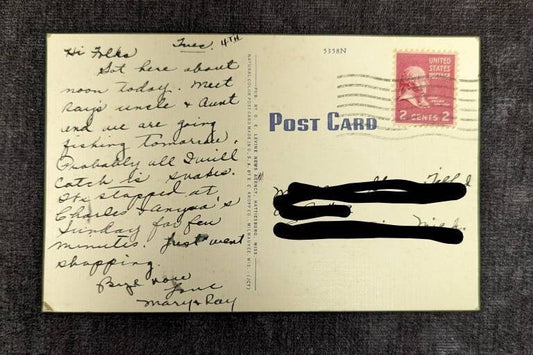 Hi Folks Tues. 4TH
Got here about
noon today. Meet
Ray's uncle & Aunt
and we are going
fishing tomorrow.
Probably all I will
catch is snakes.
We stopped at
Charles &
Sunday for few
minutes. Just went
shopping.
Bye now
Love
Mary & Ray
NATURAL COLOR POST CARD MADE IN U.S.A. BY E. C. KROPP CO., MILWAUKEE, WIS.
PUB. BY D. LEVINE NEWS AGENCY, HATTIESBURG, MISS.
5358N
POST CARD
UNITED
STATES
POSTAGE
2 CENTS 2
Mich.